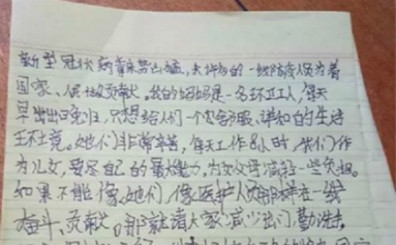 新型冠状病毒来势凶猛，太许多的一线防疫人员为着
国家、人民做贡献。我的妈妈是一名环卫工人，每天
早出晚归，只想给人们一个舒服、详和的生活
环境。她们非常辛苦，每天工作8小时，我们作
为儿女，要尽自己的最大能力，为父母减轻一些负担。
如果不能像她们，像医护人员那样在一线
奋斗、贡献，那就请大家减少出门，勤洗手，